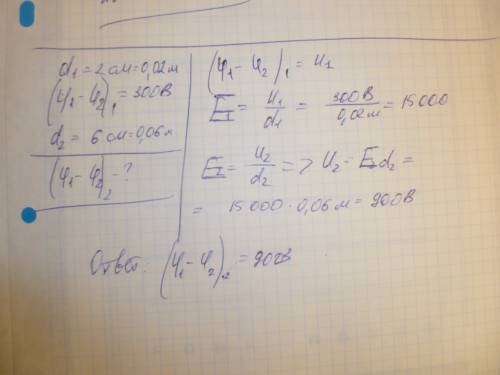 d1 = 2 см = 0,02 м
(φ1 - φ2)1 = 300В
d2 = 6 см = 0,06 м
(φ1 - φ2)2 - ?
(φ1 - φ2)1 = U1
E1 = U1/d1 = 300В/0,02м = 15000
E2 = U2/d2 => U2 - E2d2 =
= 15000 · 0,06 м = 900В
Ответ: (φ1 - φ2)2 = 900В